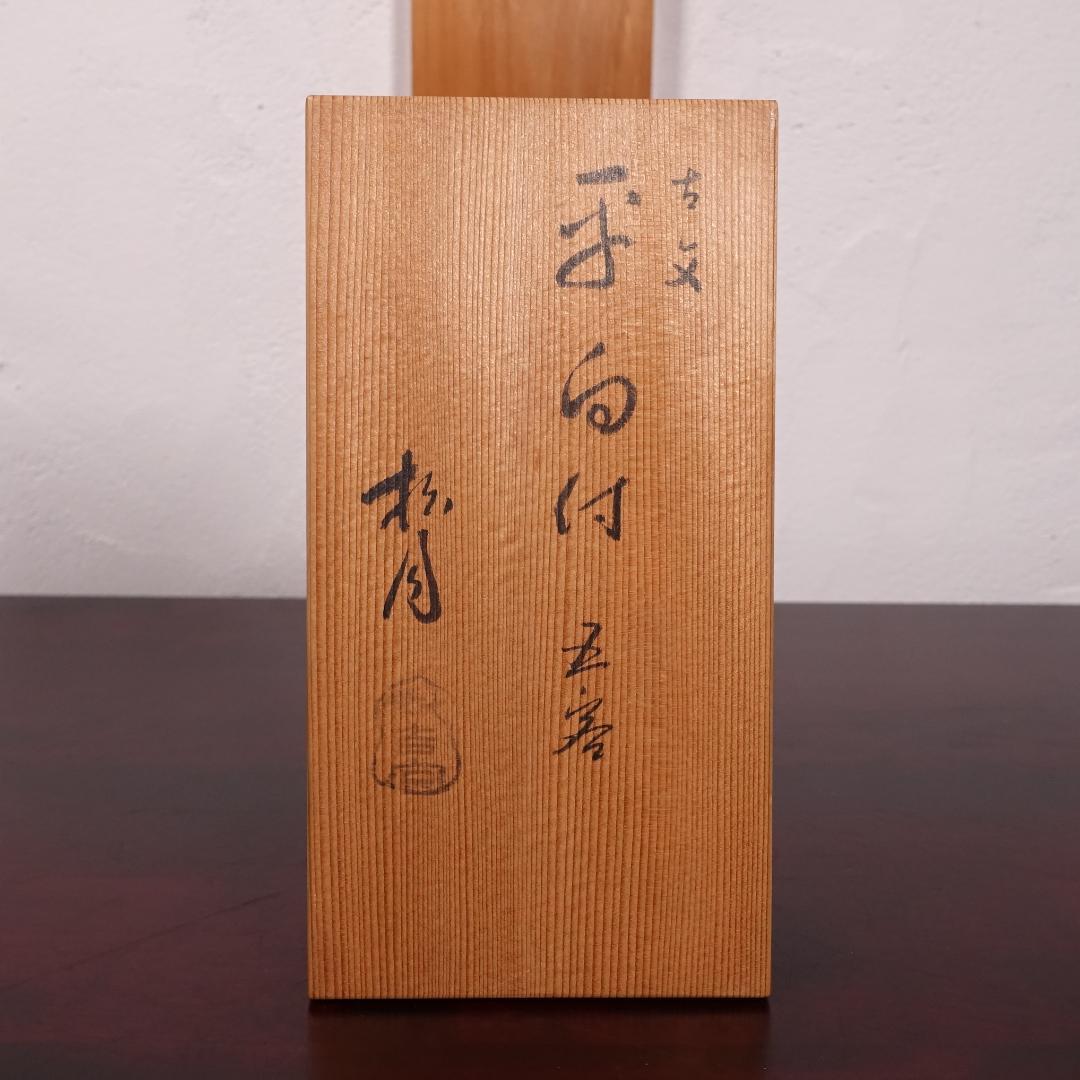 古文
平向付 五客
松月